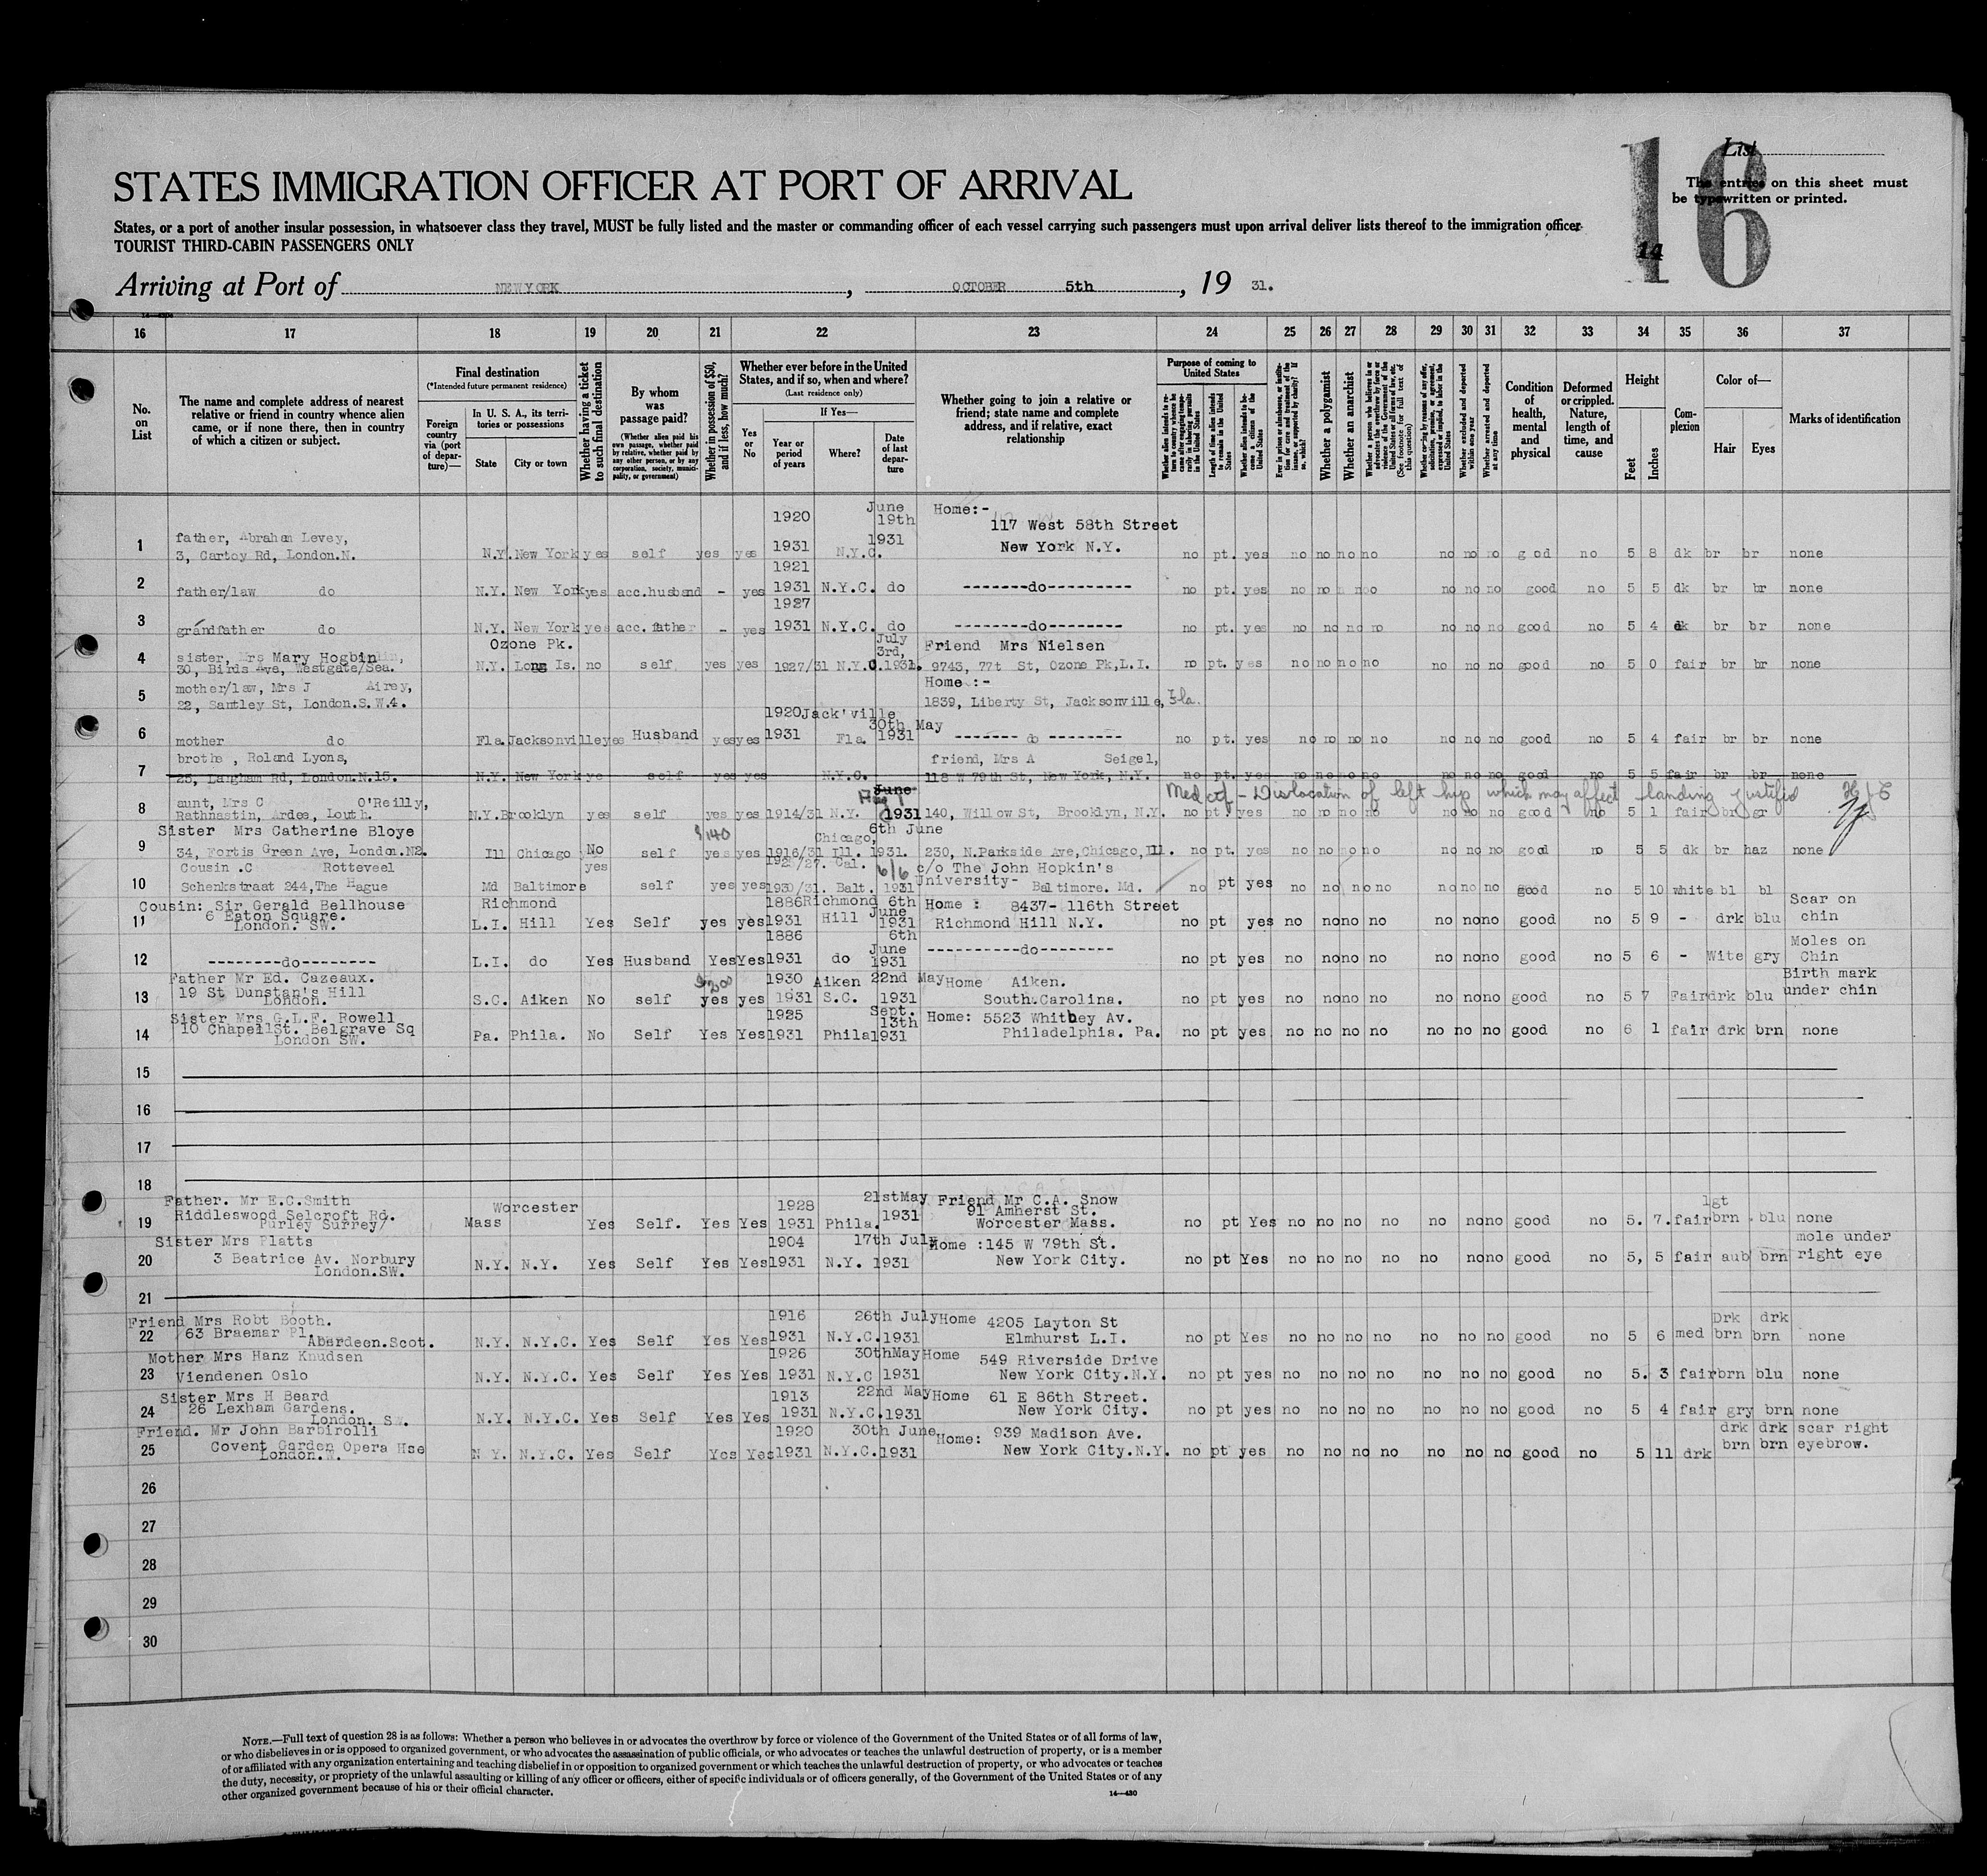 List
16
14
The entries on this sheet must
be typewritten or printed.
STATES IMMIGRATION OFFICER AT PORT OF ARRIVAL
States, or a port of another insular possession, in whatsoever class they travel, MUST be fully listed and the master or commanding officer of each vessel carrying such passengers must upon arrival deliver lists thereof to the immigration officer
TOURIST THIRD-CABIN PASSENGERS ONLY
Arriving at Port of NEW YORK, OCTOBER 5th, 19 31.
16 17 18 19 20 21 22 23 24 25 26 27 28 29 30 31 32 33 34 35 36 37
No. on List
The name and complete address of nearest relative or friend in country whence alien came, or if none there, then in country of which a citizen or subject.
Final destination
(*Intended future permanent residence)
Foreign country via (port of departure)—
In U. S. A., its territories or possessions
State City or town
Whether having a ticket to such final destination
By whom was passage paid?
(Whether alien paid his own passage, whether paid by relative, whether paid by any other person, or by any corporation, society, municipality, or government)
Whether in possession of $50, and if less, how much?
Whether ever before in the United States, and if so, when and where?
(Last residence only)
Yes or No
If Yes—
Year or period of years
Where?
Date of last departure
Whether going to join a relative or friend; state name and complete address, and if relative, exact relationship
Purpose of coming to United States
Whether alien intends to return to country whence he came after engaging temporarily in laboring pursuits in the United States
Length of time alien intends to remain in the United States
Whether alien intends to become a citizen of the United States
Ever in prison or almshouse, or institution for care and treatment of the insane, or supported by charity? If so, which?
Whether a polygamist
Whether an anarchist
Whether a person who believes in or advocates the overthrow by force or violence of the Government of the United States or all forms of law, etc. (See footnote for full text of this question)
Whether coming by reasons of any offer, solicitation, promise, or agreement, expressed or implied, to labor in the United States
Whether excluded and deported within one year
Whether arrested and deported at any time
Condition of health, mental and physical
Deformed or crippled. Nature, length of time, and cause
Height
Feet Inches
Complexion
Color of—
Hair Eyes
Marks of identification
1 father, Abraham Levey, 3, Cartoy Rd, London.N. N.Y. New York yes self yes yes 1920 1931 N.Y.C. June 19th 1931 Home:- 117 West 58th Street New York N.Y. no pt. yes no no no no no no no good no 5 8 dk br br none
2 father/law do N.Y. New York yes acc.husband - yes 1921 1931 N.Y.C. do -------do---------- no pt. yes no no no no no no good no 5 5 dk br br none
3 grandfather do N.Y. New York yes acc. father - yes 1927 1931 N.Y.C. do -------do---------- no pt. yes no no no no no no no good no 5 4 dk br br none
4 sister, Mrs Mary Hogbin, 30, Birds Ave, Westgate/Sea. N.Y. Ozone Pk. Long Is. no self yes yes 1927/31 N.Y.C. July 3rd, 1931. Friend Mrs Nielsen 9743, 77t St, Ozone Pk,L.I. no pt. yes no no no no no no no good no 5 0 fair br br none
5 mother/law, Mrs J Airey, 22, Santley St, London.S.W.4. Home :- 1839, Liberty St, Jacksonville, Fla.
6 mother do Fla. Jacksonville yes Husband yes yes 1920 1931 Jack'ville Fla. 30th May 1931 ------- do -------- no pt. yes no no no no no no no good no 5 4 fair br br none
7 brothe , Roland Lyons, 25, Langham Rd, London.N.15. N.Y. New York ye self yes yes N.Y.C. friend, Mrs A Seigel, 118 W 79th St, New York, N.Y. no pt. yes no no no no no no no good no 5 5 fair br br none
Med ctf - Dislocation of left hip which may affect landing justified
8 aunt, Mrs C O'Reilly, Rathnastin, Ardes, Louth. N.Y. Brooklyn yes self yes yes 1914/31 N.Y. June Aug 1 1931 140, Willow St, Brooklyn, N.Y. no pt. yes no no no no no no no good no 5 1 fair br gr
9 Sister Mrs Catherine Bloye 34, Fortis Green Ave, London.N2. Ill Chicago No self $140 yes yes 1916/31 Chicago, Ill. 6th June 1931. 230, N.Parkside Ave,Chicago,Ill. no pt. yes no no no no no no no good no 5 5 dk br haz none
10 Cousin .C Rotteveel Schenkstraat 244,The Hague Md Baltimore yes self yes yes 1927. Cal. 1930/31. Balt. 6/6 1931 c/o The John Hopkin's University- Baltimore. Md. no pt yes no no no no no no no good no 5 10 white bl bl
11 Cousin: Sir Gerald Bellhouse 6 Eaton Square. London. SW. L.I. Richmond Hill Yes Self yes yes 1886 1931 Richmond Hill 6th June 1931 Home : 8437- 116th Street Richmond Hill N.Y. no pt yes no no no no no no no good no 5 9 - drk blu Scar on chin
12 --------do-------- L.I. do Yes Husband Yes Yes 1886 1931 do 6th June 1931 ----------do-------- no pt yes no no no no no no no good no 5 6 - Wite gry Moles on Chin
13 Father Mr Ed. Cazeaux. 19 St Dunstan's Hill London. S.C. Aiken No self $200 yes yes 1930 1931 Aiken S.C. 22nd May 1931 Home Aiken. South.Carolina. no pt yes no no no no no no no good no 5 7 Fair drk blu Birth mark under chin
14 Sister Mrs G.L.F. Rowell 10 Chapel St. Belgrave Sq London SW. Pa. Phila. No Self Yes Yes 1925 1931 Phila Sept. 13th 1931 Home: 5523 Whitbey Av. Philadelphia. Pa. no pt yes no no no no no no no good no 6 1 fair drk brn none
15
16
17
18
19 Father. Mr E.C.Smith Riddleswood Selcroft Rd. Purley Surrey/ Mass Worcester Yes Self. Yes Yes 1928 1931 Phila. 21stMay 1931 Friend Mr C.A. Snow 91 Amherst St. Worcester Mass. no pt Yes no no no no no no no good no 5. 7. fair lgt brn blu none
20 Sister Mrs Platts 3 Beatrice Av. Norbury London.SW. N.Y. N.Y. Yes Self Yes Yes 1904 1931 N.Y. 17th July 1931 Home :145 W 79th St. New York City. no pt Yes no no no no no no no good no 5, 5 fair aub brn mole under right eye
21
22 Friend Mrs Robt Booth. 63 Braemar Pl Aberdeen.Scot. N.Y. N.Y.C. Yes Self Yes Yes 1916 1931 N.Y.C. 26th July 1931 Home 4205 Layton St Elmhurst L.I. no pt Yes no no no no no no no good no 5 6 med Drk brn drk brn none
23 Mother Mrs Hanz Knudsen Viendenen Oslo N.Y. N.Y.C. Yes Self Yes Yes 1926 1931 N.Y.C 30thMay 1931 Home 549 Riverside Drive New York City.N.Y. no pt yes no no no no no no no good no 5. 3 fair brn blu none
24 Sister Mrs H Beard 26 Lexham Gardens. London. N.Y. N.Y.C. Yes Self Yes Yes 1913 1931 N.Y.C. 22nd May 1931 Home 61 E 86th Street. New York City. no pt yes no no no no no no no good no 5 4 fair gry brn none
25 Friend. Mr John Barbirolli Covent Garden Opera Hse London.N. N Y. N.Y.C. Yes Self Yes Yes 1920 1931 N.Y.C. 30th June 1931 Home: 939 Madison Ave. New York City.N.Y. no pt yes no no no no no no no good no 5 11 drk drk brn drk brn scar right eyebrow.
26
27
28
29
30
NOTE.—Full text of question 28 is as follows: Whether a person who believes in or advocates the overthrow by force or violence of the Government of the United States or of all forms of law,
or who disbelieves in or is opposed to organized government, or who advocates the assassination of public officials, or who advocates or teaches the unlawful destruction of property, or is a member
of or affiliated with any organization entertaining and teaching disbelief in or opposition to organized government or which teaches the unlawful destruction of property, or who advocates or teaches
the duty, necessity, or propriety of the unlawful assaulting or killing of any officer or officers, either of specific individuals or of officers generally, of the Government of the United States or of any
other organized government because of his or their official character.
14—430